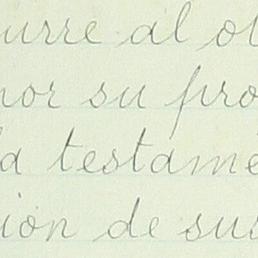 urre al ot
nor su pro
la testame
ion de sus